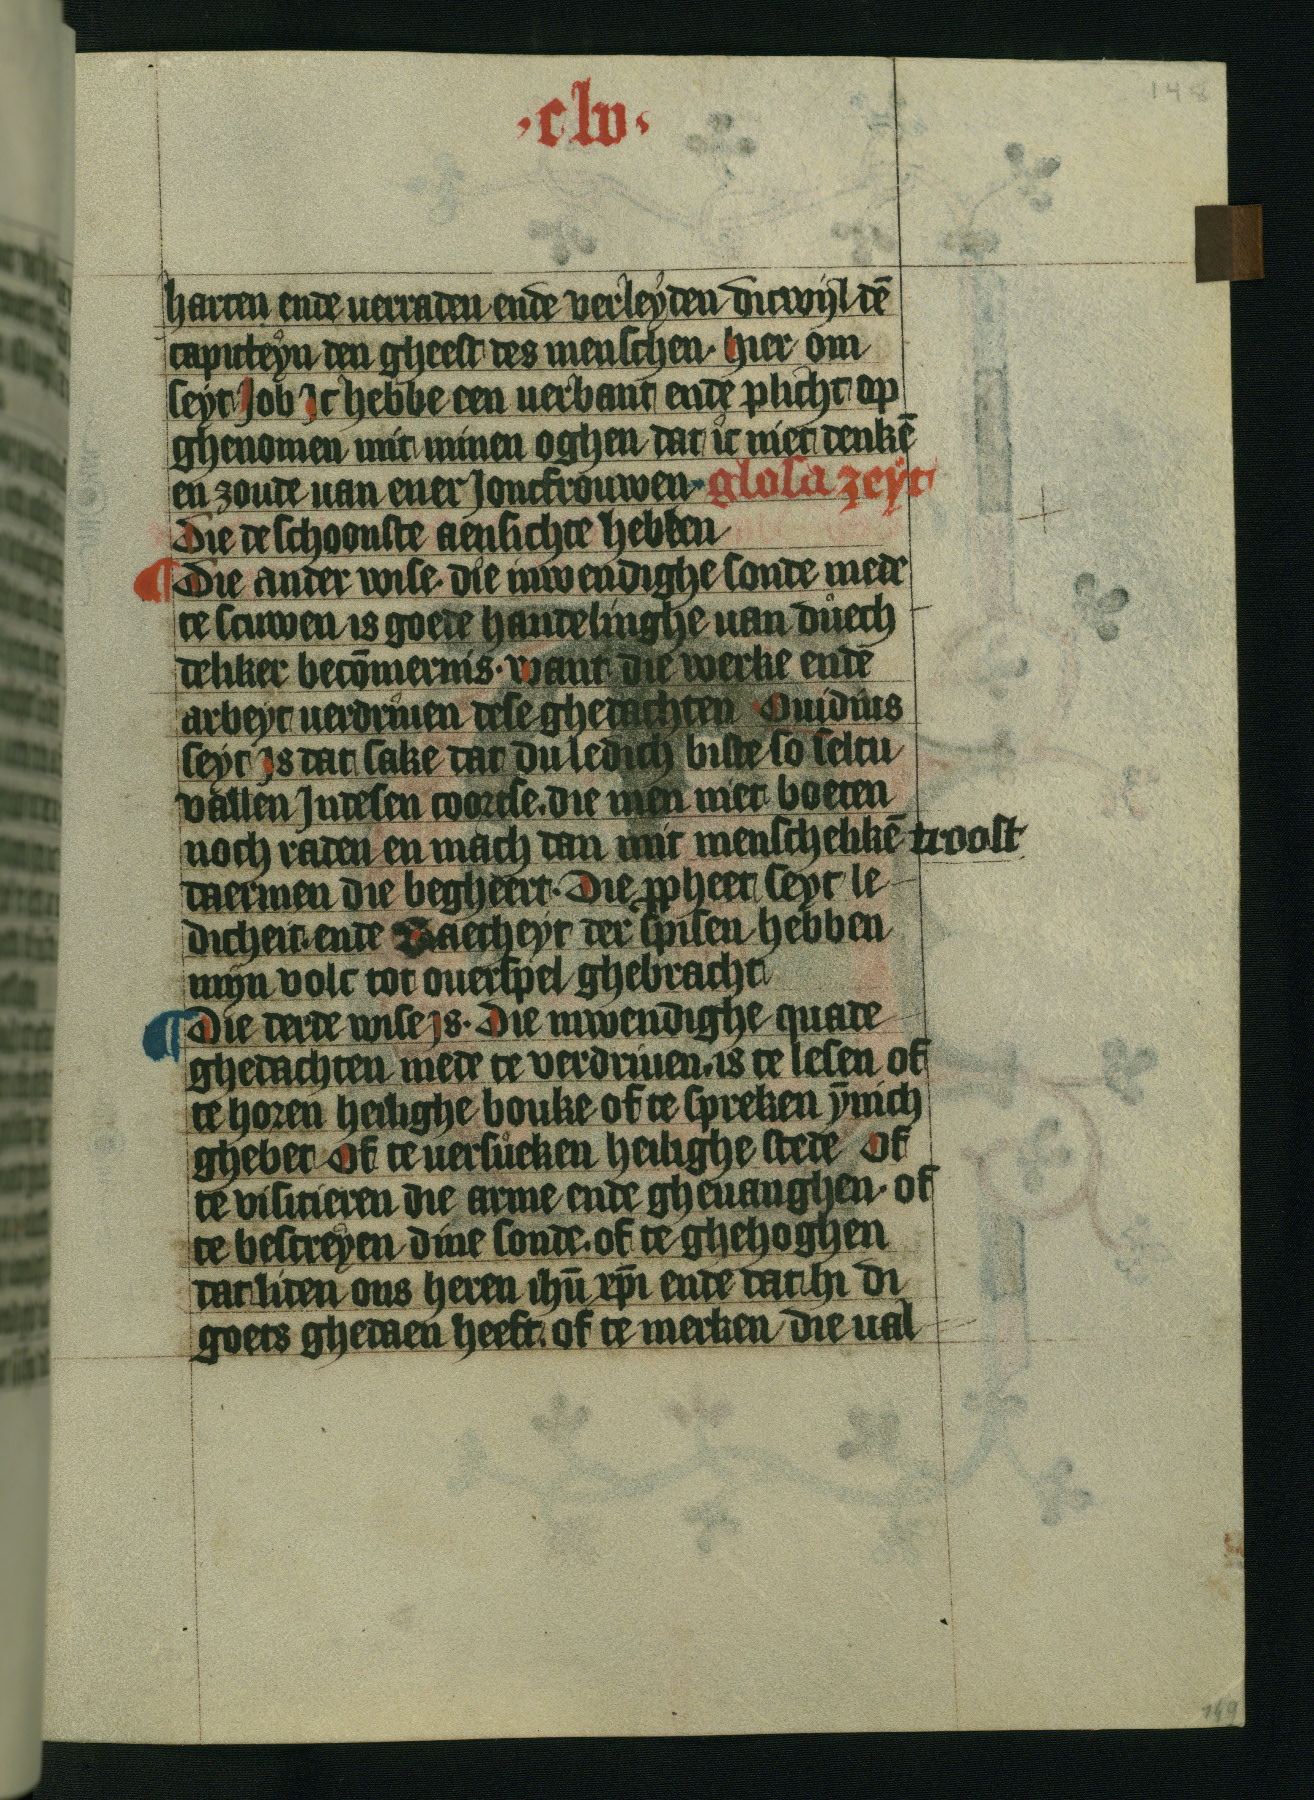 ·clv·
148
harten ende verraden ende verleyden dicwijl dē
capiteyn den gheest des menschen· hier om
seyt Job Jc hebbe een verbant ende plicht op
ghenomen mit minen oghen dat ic niet denkē
en zoude van ener Joncfrouwen· glosa zeyt
Die de schoonste aensichte hebben
¶ Die ander wise· die inwendighe sonde mede
te scuwen is goede handelinghe van duech
deliker becōmernis· want die werke ende
arbeyt verdriuen dese ghedachten Ouidius
seyt Js dat sake dat du ledich biste so seltu
vallen Jn desen coortse. die men niet boeten
noch raden en mach dan mit menschelikē troost
daermen die begheert· Die ppheet seyt le
dicheit. ende Saetheyt der spisen hebben
mijn volc tot ouerspel ghebracht
¶ Die derde wise js· Die inwendighe quade
ghedachten mede te verdriuen. is te lesen of
te horen heilighe bouke of te spreken ȳnich
ghebet Of te versueken heilighe stede Of
te visitieren die arme ende gheuanghen· of
te bescreyen dine sonde. of te ghehoghen
dat liden ons heren ihū xp̄i ende dat hi di
goets ghedaen heeft. of te merken die val
149